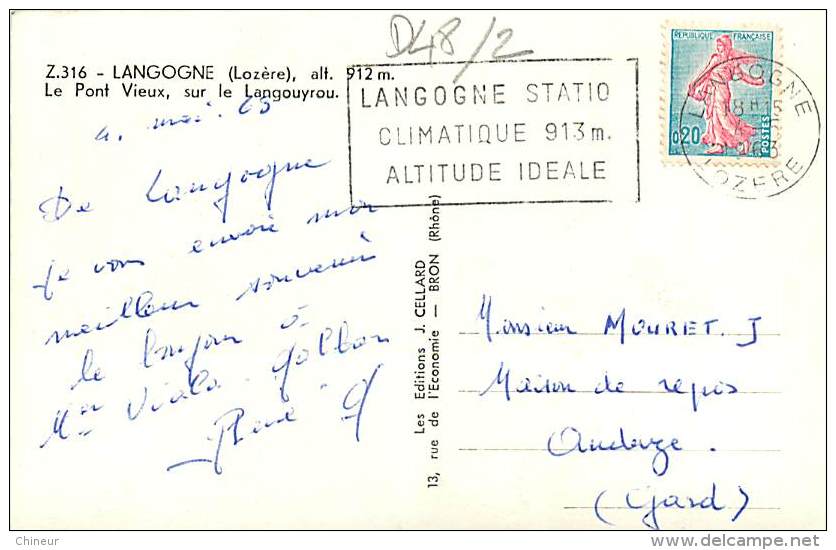 D48/2
Z.316 - LANGOGNE (Lozère), alt. 912 m.
Le Pont Vieux, sur le Langouyrou.
LANGOGNE STATIO
CLIMATIQUE 913 m.
ALTITUDE IDEALE
REPUBLIQUE FRANÇAISE
0,20
POSTES
LANGOGNE
18 H 15
1963
LOZERE
4. mai. 63
De Langogne
je vous envoie mon
meilleur souvenir
le bonjour à
Viala
René
Les Editions J. CELLARD
13, rue de l'Economie — BRON (Rhône)
Monsieur MOURET. J
Maison de repos
Anduze.
(Gard)
Chineur
www.delcampe.net